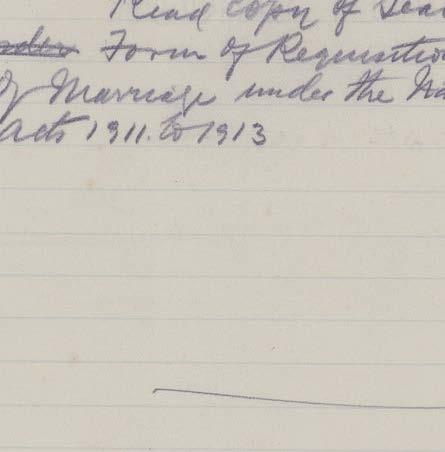 Read copy of
Form of Requisition
of Marriage under the
Acts 1911. to 1913